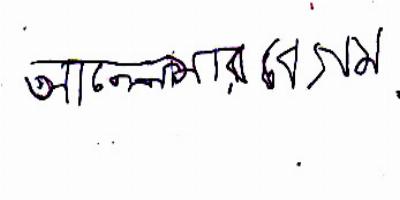 আনোয়ার বেগম